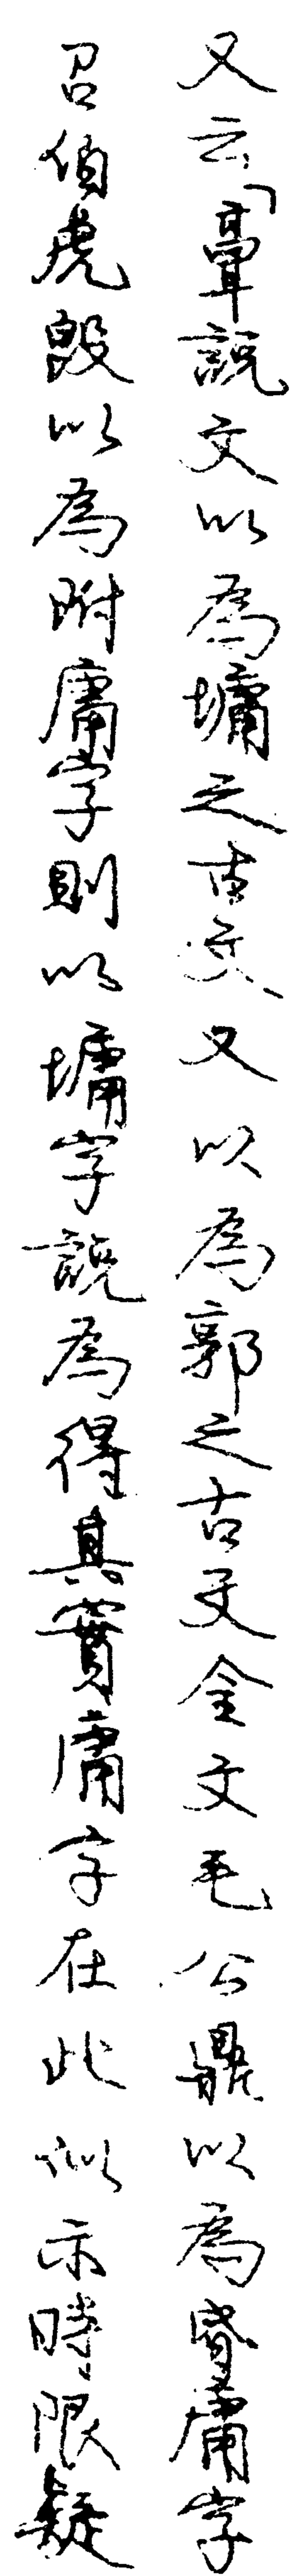 又云「𩫖說文以為墉之古文又以為郭之古文金文毛公鼎以為昏庸字
召伯虎𣪘以為附庸字則以墉字說為得其實庸字在此似示時限疑